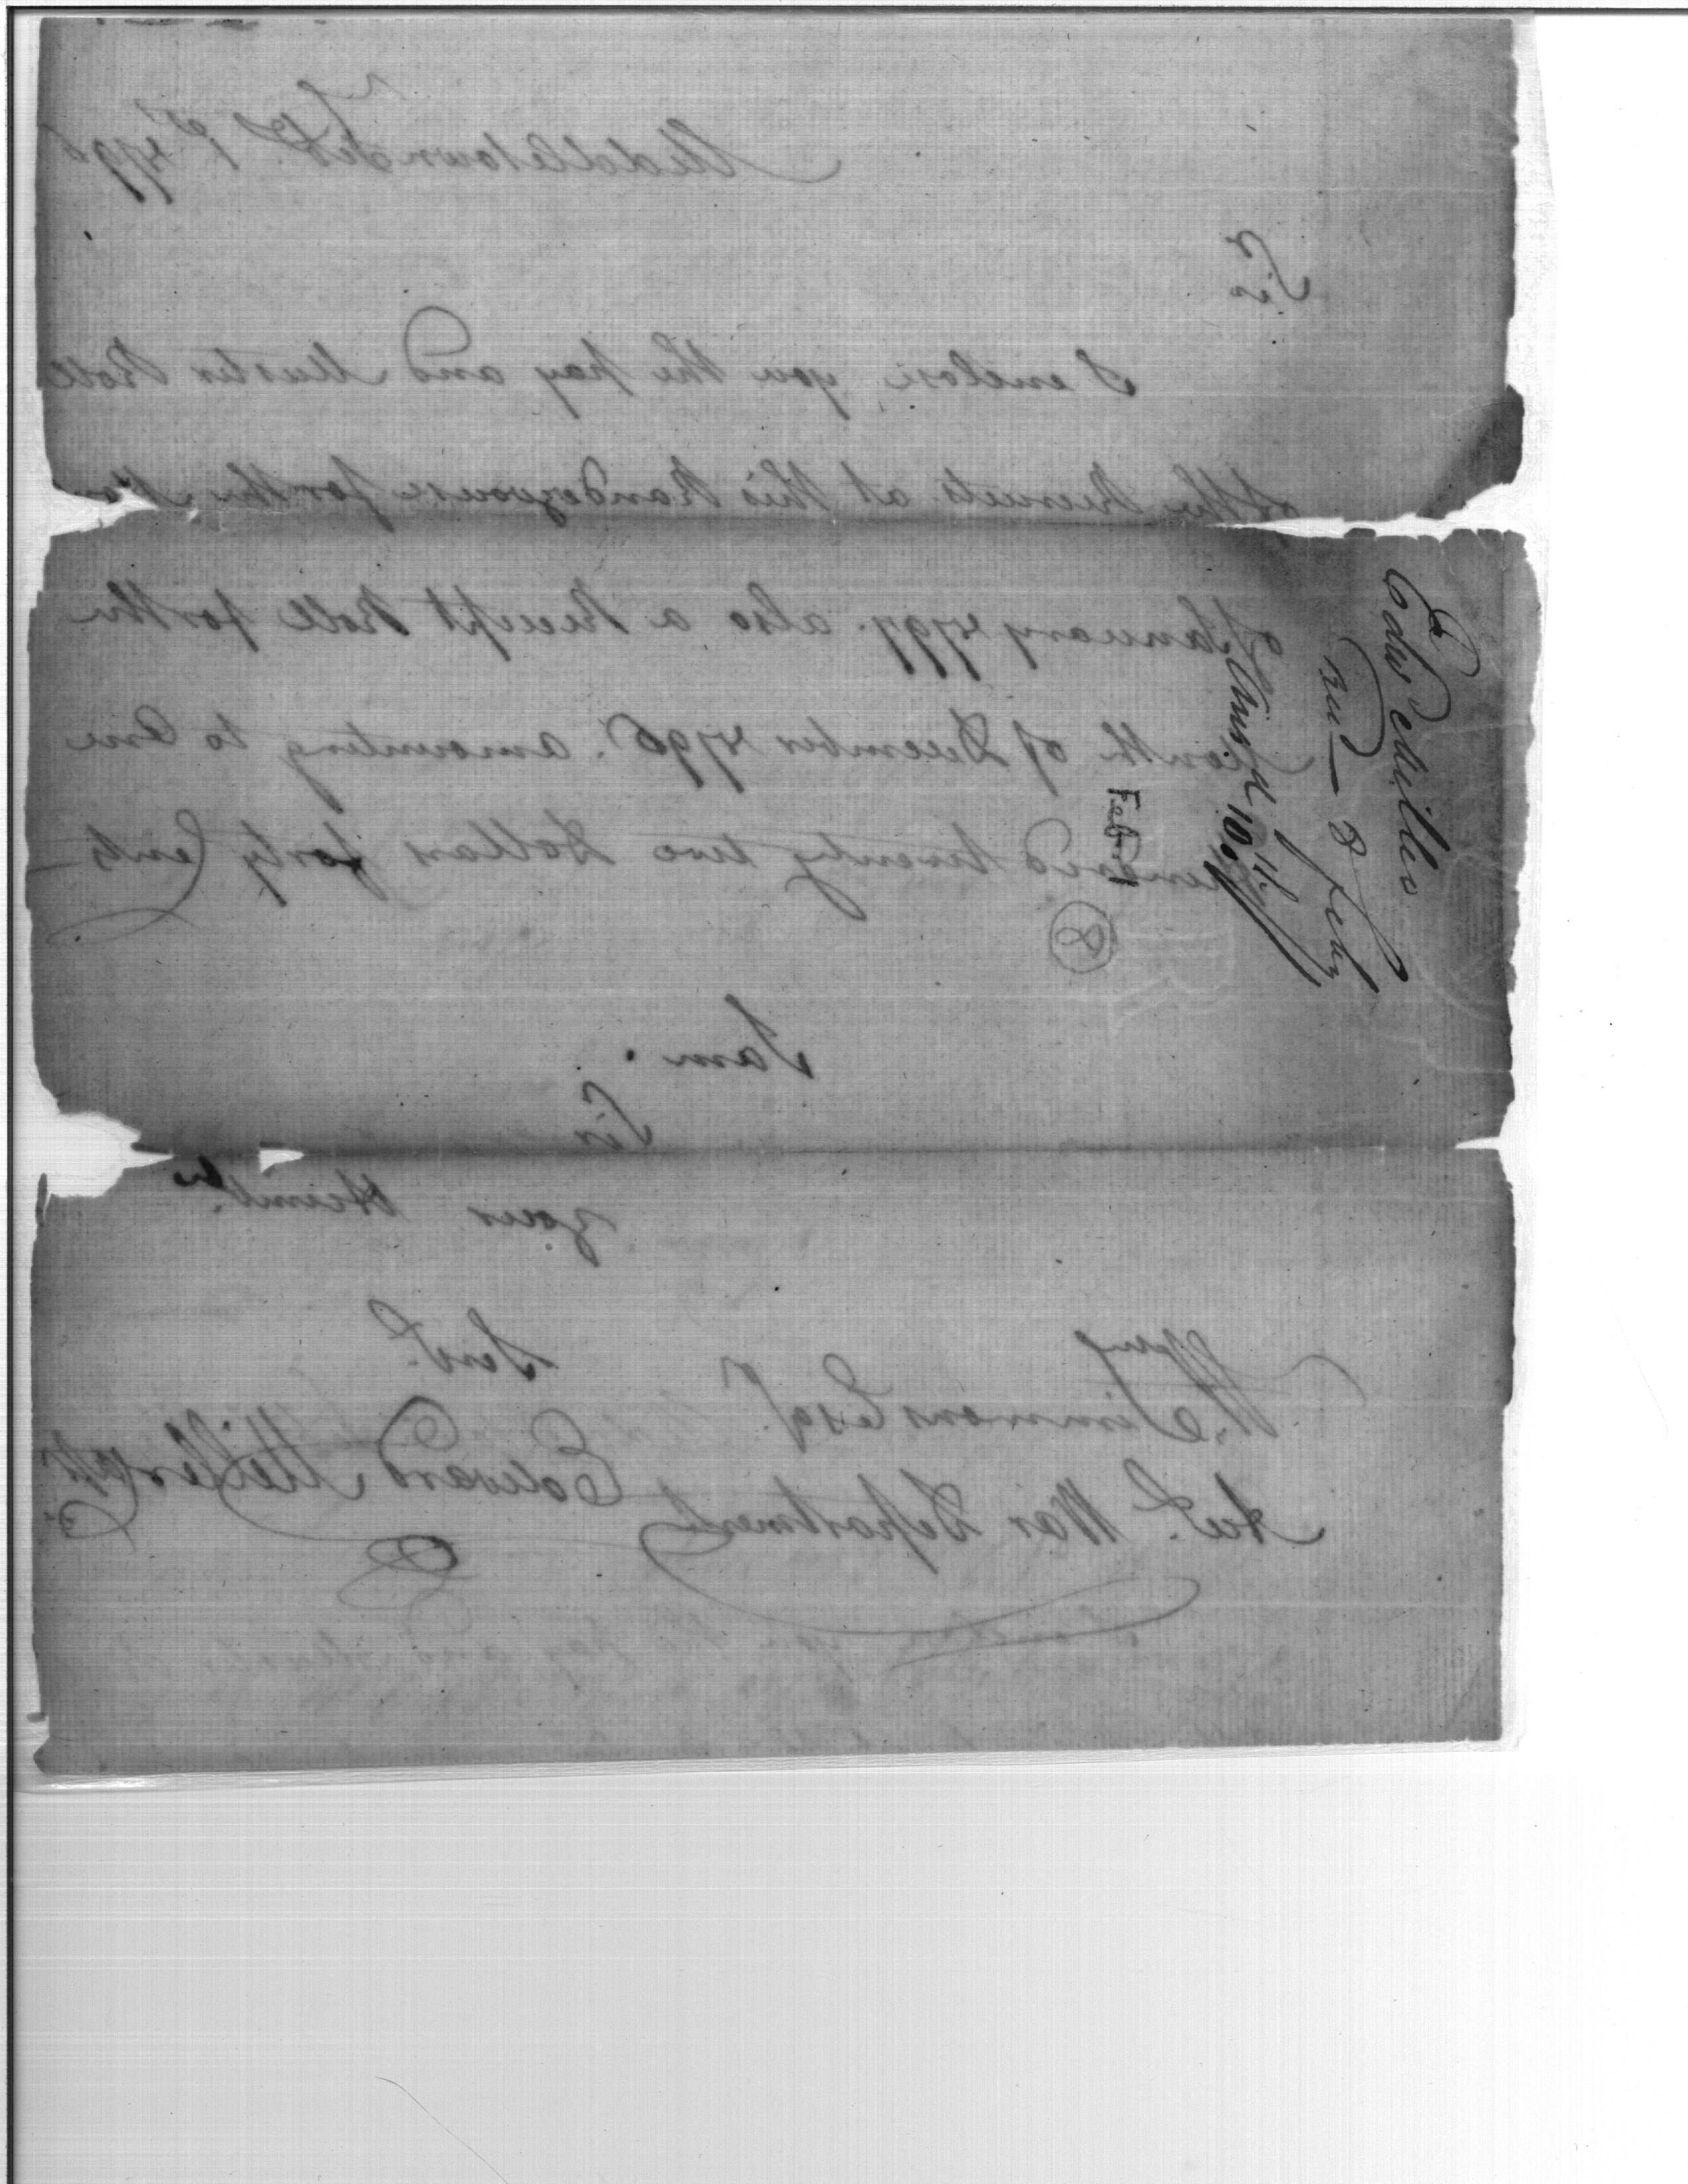 Middletown Feb. 1st 1796
Sir
I enclose you the pay and Muster Roll
of the Recruits at this Randezvouse for the
of January 1797. also a Receipt Roll for the
Month of December 1796. amounting to One
Hundred twenty two Dollars forty Cents
I am.
Sir
your Humbl.
Servt.
Wm
W. Simmons Esqr.
Edward Miller Capt
Acct. War Department
Edwd Miller
Feby
Feb 1
8